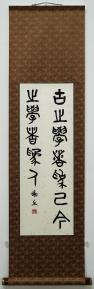 古之學者為己今
之學者為人